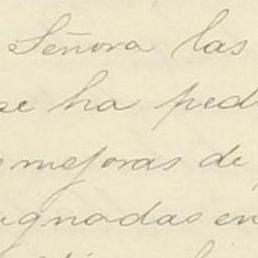 Señora las
se ha ped
mejoras de
ignadas en